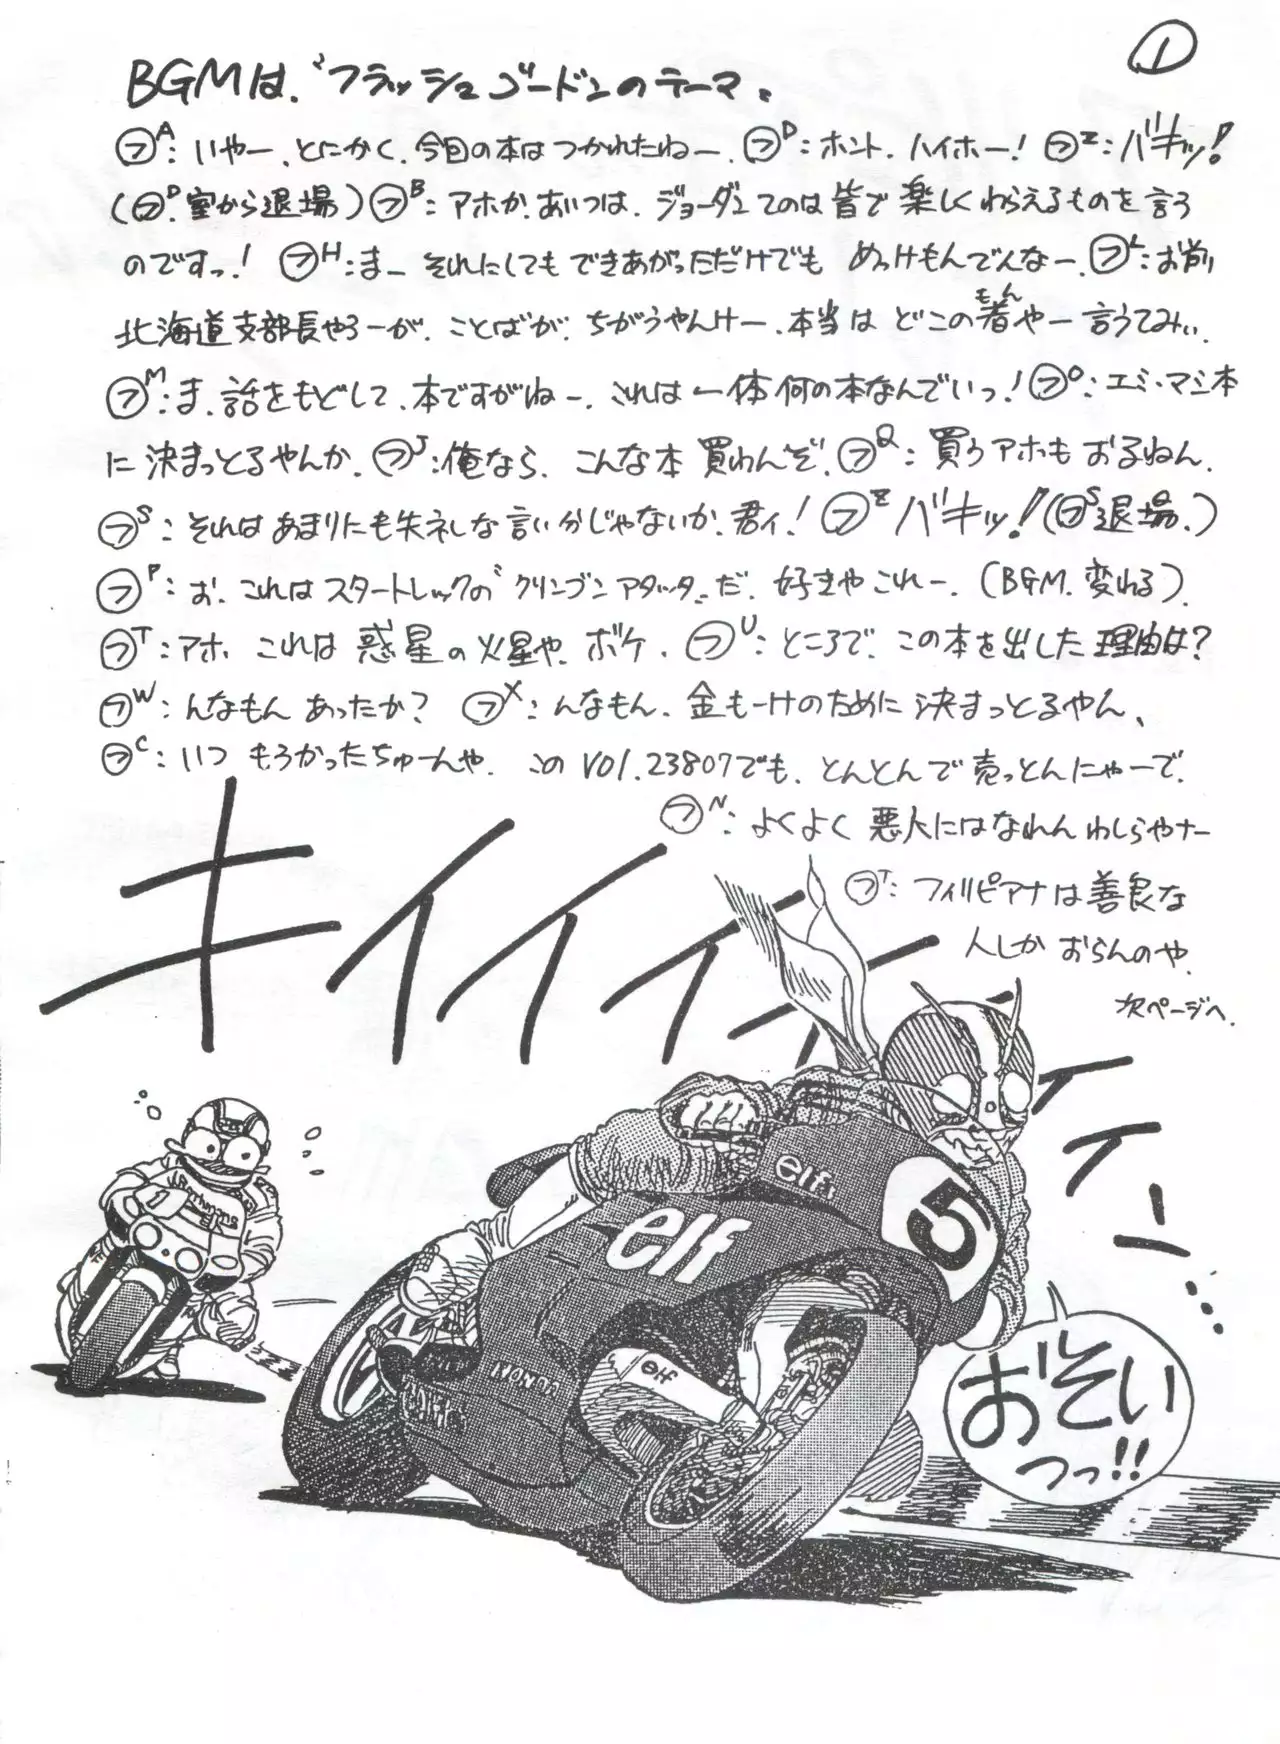 ①
BGMは、〝フラッシュゴードンのテーマ〟
㋫A:いやー、とにかく、今回の本はつかれたねー、㋫D:ホント、ハイホー!㋫Z:バキッ!
(㋫D、室から退場)㋫B:アホか、あいつは、ジョーダンてのは皆で楽しくわらえるものを言う
のですっ!㋫H:まーそれにしてもできあがっただけでもめっけもんでんなー、㋫L:お前
北海道支部長やろーが、ことばが、ちがうやんけー、本当はどこの者やー言うてみぃ、
もん
㋫M:ま、話をもどして、本ですがねー、これは一体何の本なんでいっ!㋫O:エミ・マミ本
に決まっとるやんか、㋫J:俺なら、こんな本買わんぞ、㋫Q:買うアホもおるねん、
㋫S:それはあまりにも失ネしな言い分じゃないか、君ィ!㋫Zバキッ!(㋫S退場、)
㋫P:お、これはスタートレックの〝クリンゴンアタック〟だ、好きやこれー、(BGM、変わる)
㋫T:アホ、これは惑星の火星や、ボケ、㋫U:ところで、この本を出した理由は?
㋫W:んなもんあったか?㋫X:んなもん、金もーけのために決まっとるやん、
㋫C:いつもうかったちゅーんや、このVOl.23807でも、とんとんで売っとんにゃーで、
㋫N:よくよく悪人にはなれんわしらやナー
㋫T:フィリピアナは善良な
人しかおらんのや、
次ページへ、
キイイイイイイイー…
elf
elf
5
elf
HONDA
おそい
つっ!!